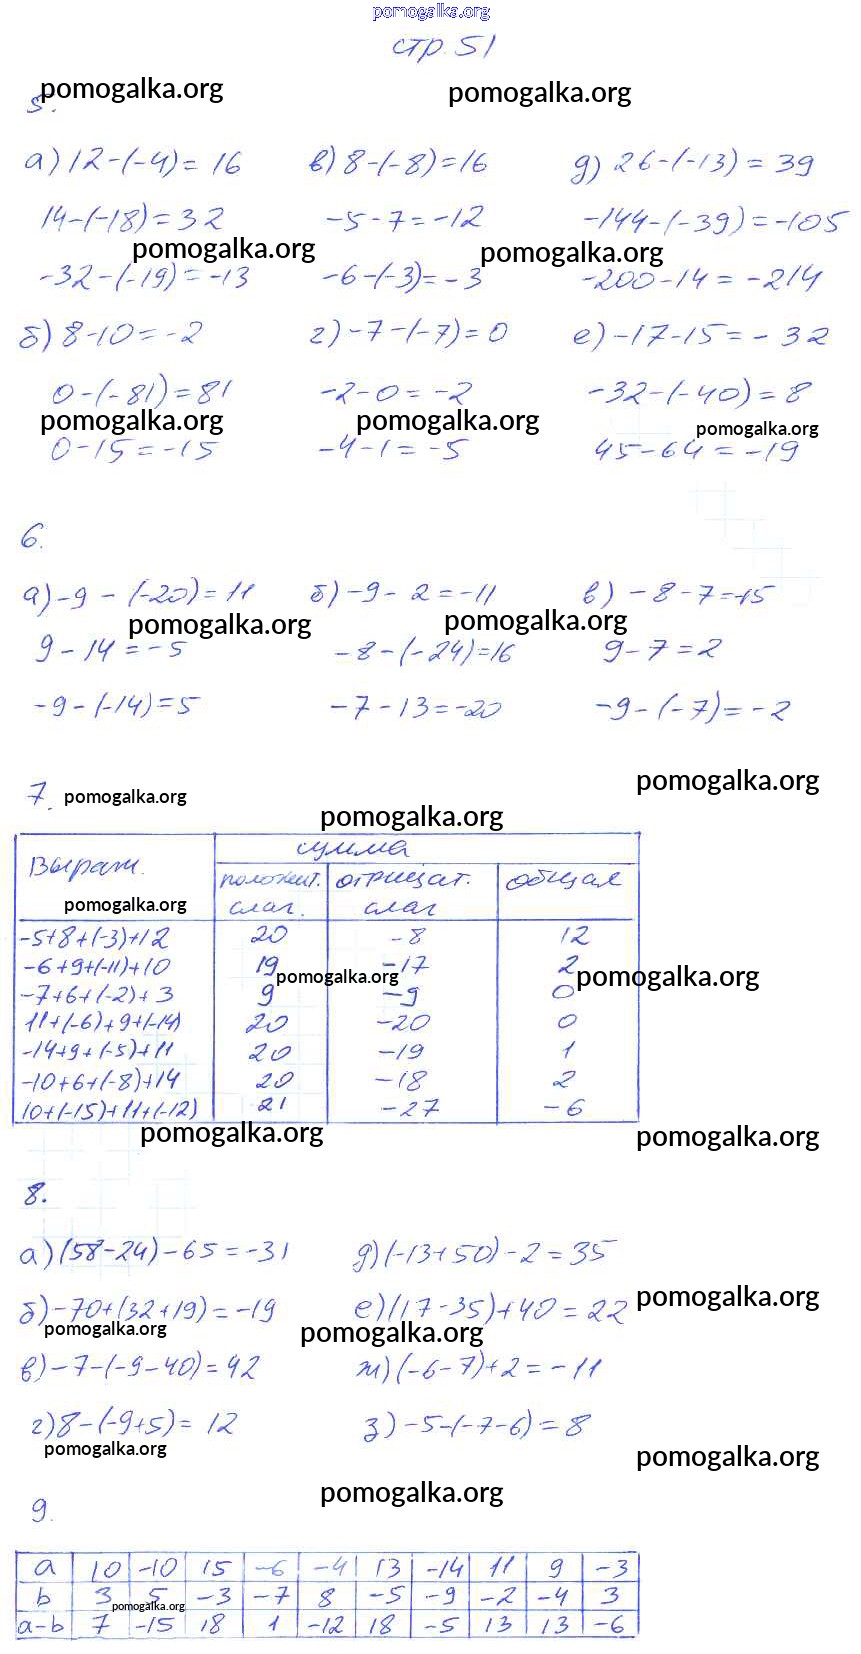 pomogalka.org
стр. 51
pomogalka.org pomogalka.org
5.
а) 12-(-4)= 16 в) 8-(-8)=16 д) 26-(-13) = 39
14-(-18)=32 -5-7=-12 -144-(-39)=-105
pomogalka.org pomogalka.org
-32-(-19)=-13 -6-(-3)=-3 -200-14=-214
б) 8-10=-2 г) -7-(-7)=0 е) -17-15=-32
0-(-81)=81 -2-0=-2 -32-(-40)=8
pomogalka.org pomogalka.org pomogalka.org
0-15=-15 -4-1=-5 45-64=-19
6.
а) -9-(-20)=11 б) -9-2=-11 в) -8-7=-15
pomogalka.org pomogalka.org
9-14=-5 -8-(-24)=16 9-7=2
-9-(-14)=5 -7-13=-20 -9-(-7)=-2
7. pomogalka.org pomogalka.org
pomogalka.org
Выраж. сумма
положит. отрицат. общая
pomogalka.org слаг. слаг
-5+8+(-3)+12 20 -8 12
-6+9+(-11)+10 19 -17 2
pomogalka.org pomogalka.org
-7+6+(-2)+3 9 -9 0
11+(-6)+9+(-14) 20 -20 0
-14+9+(-5)+11 20 -19 1
-10+6+(-8)+14 20 -18 2
10+(-15)+11+(-12) 21 -27 -6
pomogalka.org pomogalka.org
8.
а) (58-24)-65=-31 д) (-13+50)-2=35
б) -70+(32+19)=-19 е) (17-35)+40=22 pomogalka.org
pomogalka.org pomogalka.org
в) -7-(-9-40)=42 ж) (-6-7)+2=-11
г) 8-(-9+5)= 12 з) -5-(-7-6)=8
pomogalka.org pomogalka.org
pomogalka.org
9.
a 10 -10 15 -6 -4 13 -14 11 9 -3
b 3 5 -3 -7 8 -5 -9 -2 -4 3
pomogalka.org
a-b 7 -15 18 1 -12 18 -5 13 13 -6